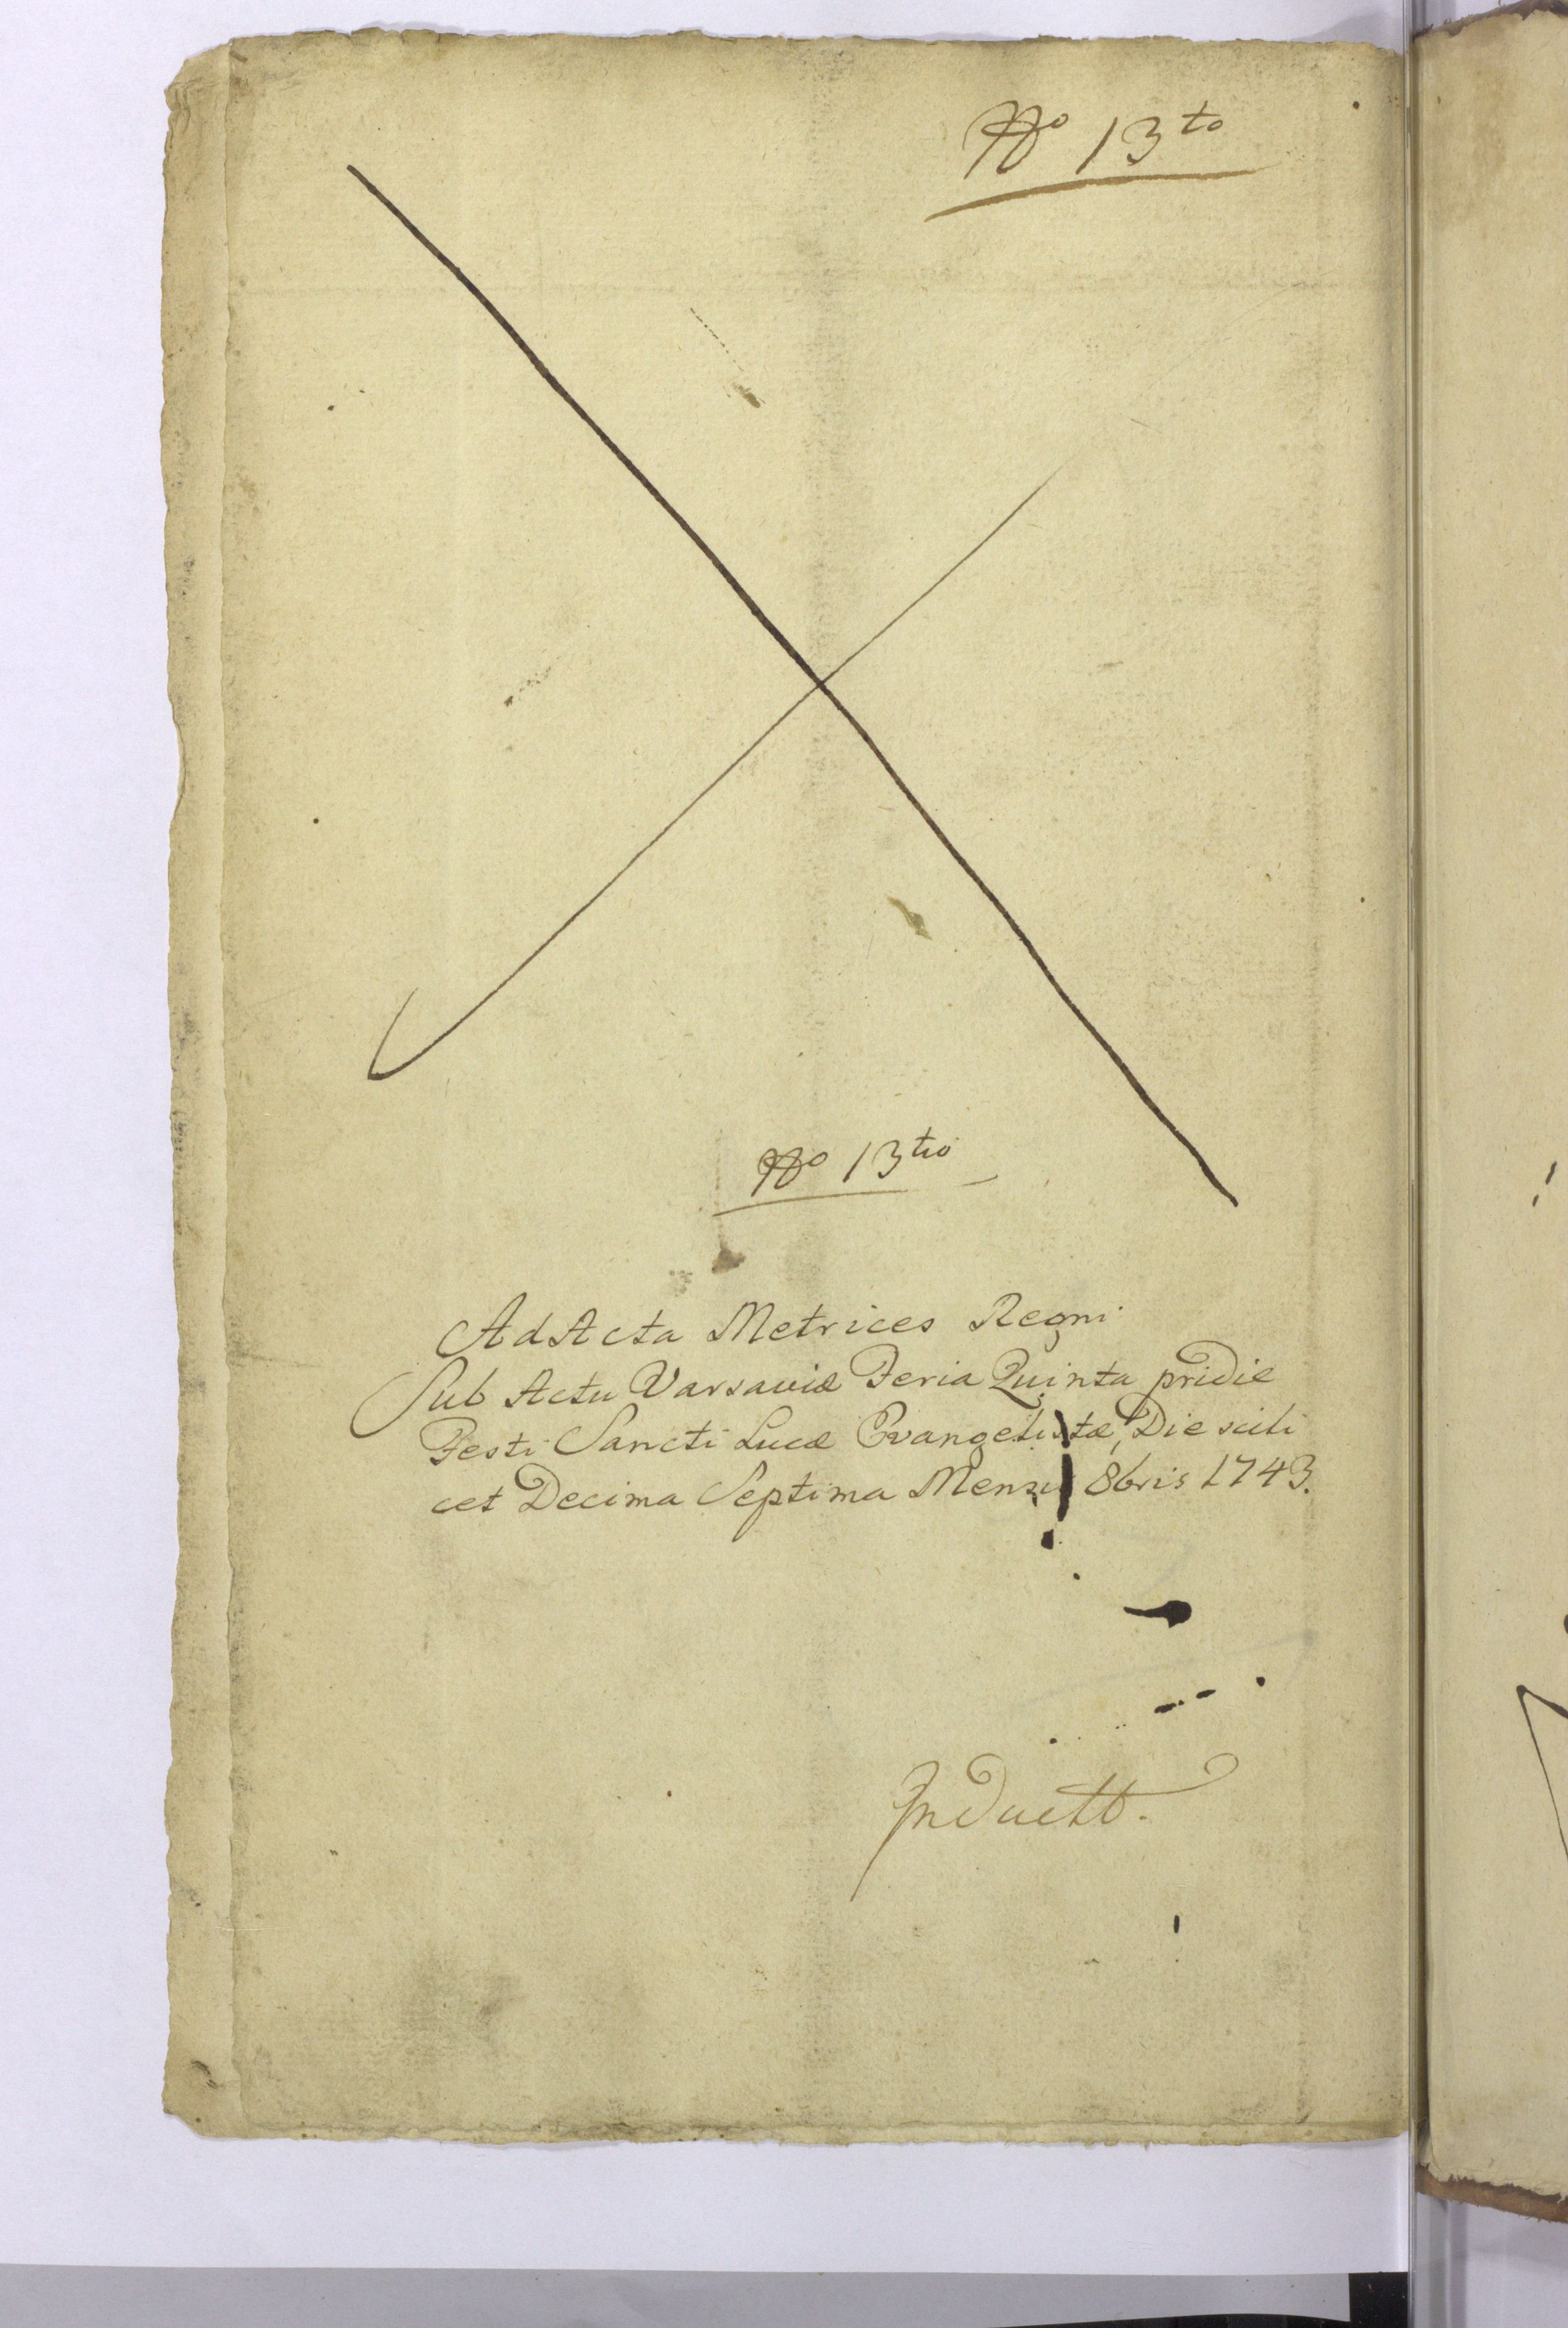 No 13to
No 13tio
Ad Acta Metrices Regni
Sub Actu Varsaviæ Feria Quinta pridie
Festi Sancti Lucæ Evangelistæ, Die scili
cet Decima Septima Mensis 8bris 1743.
Inductt.